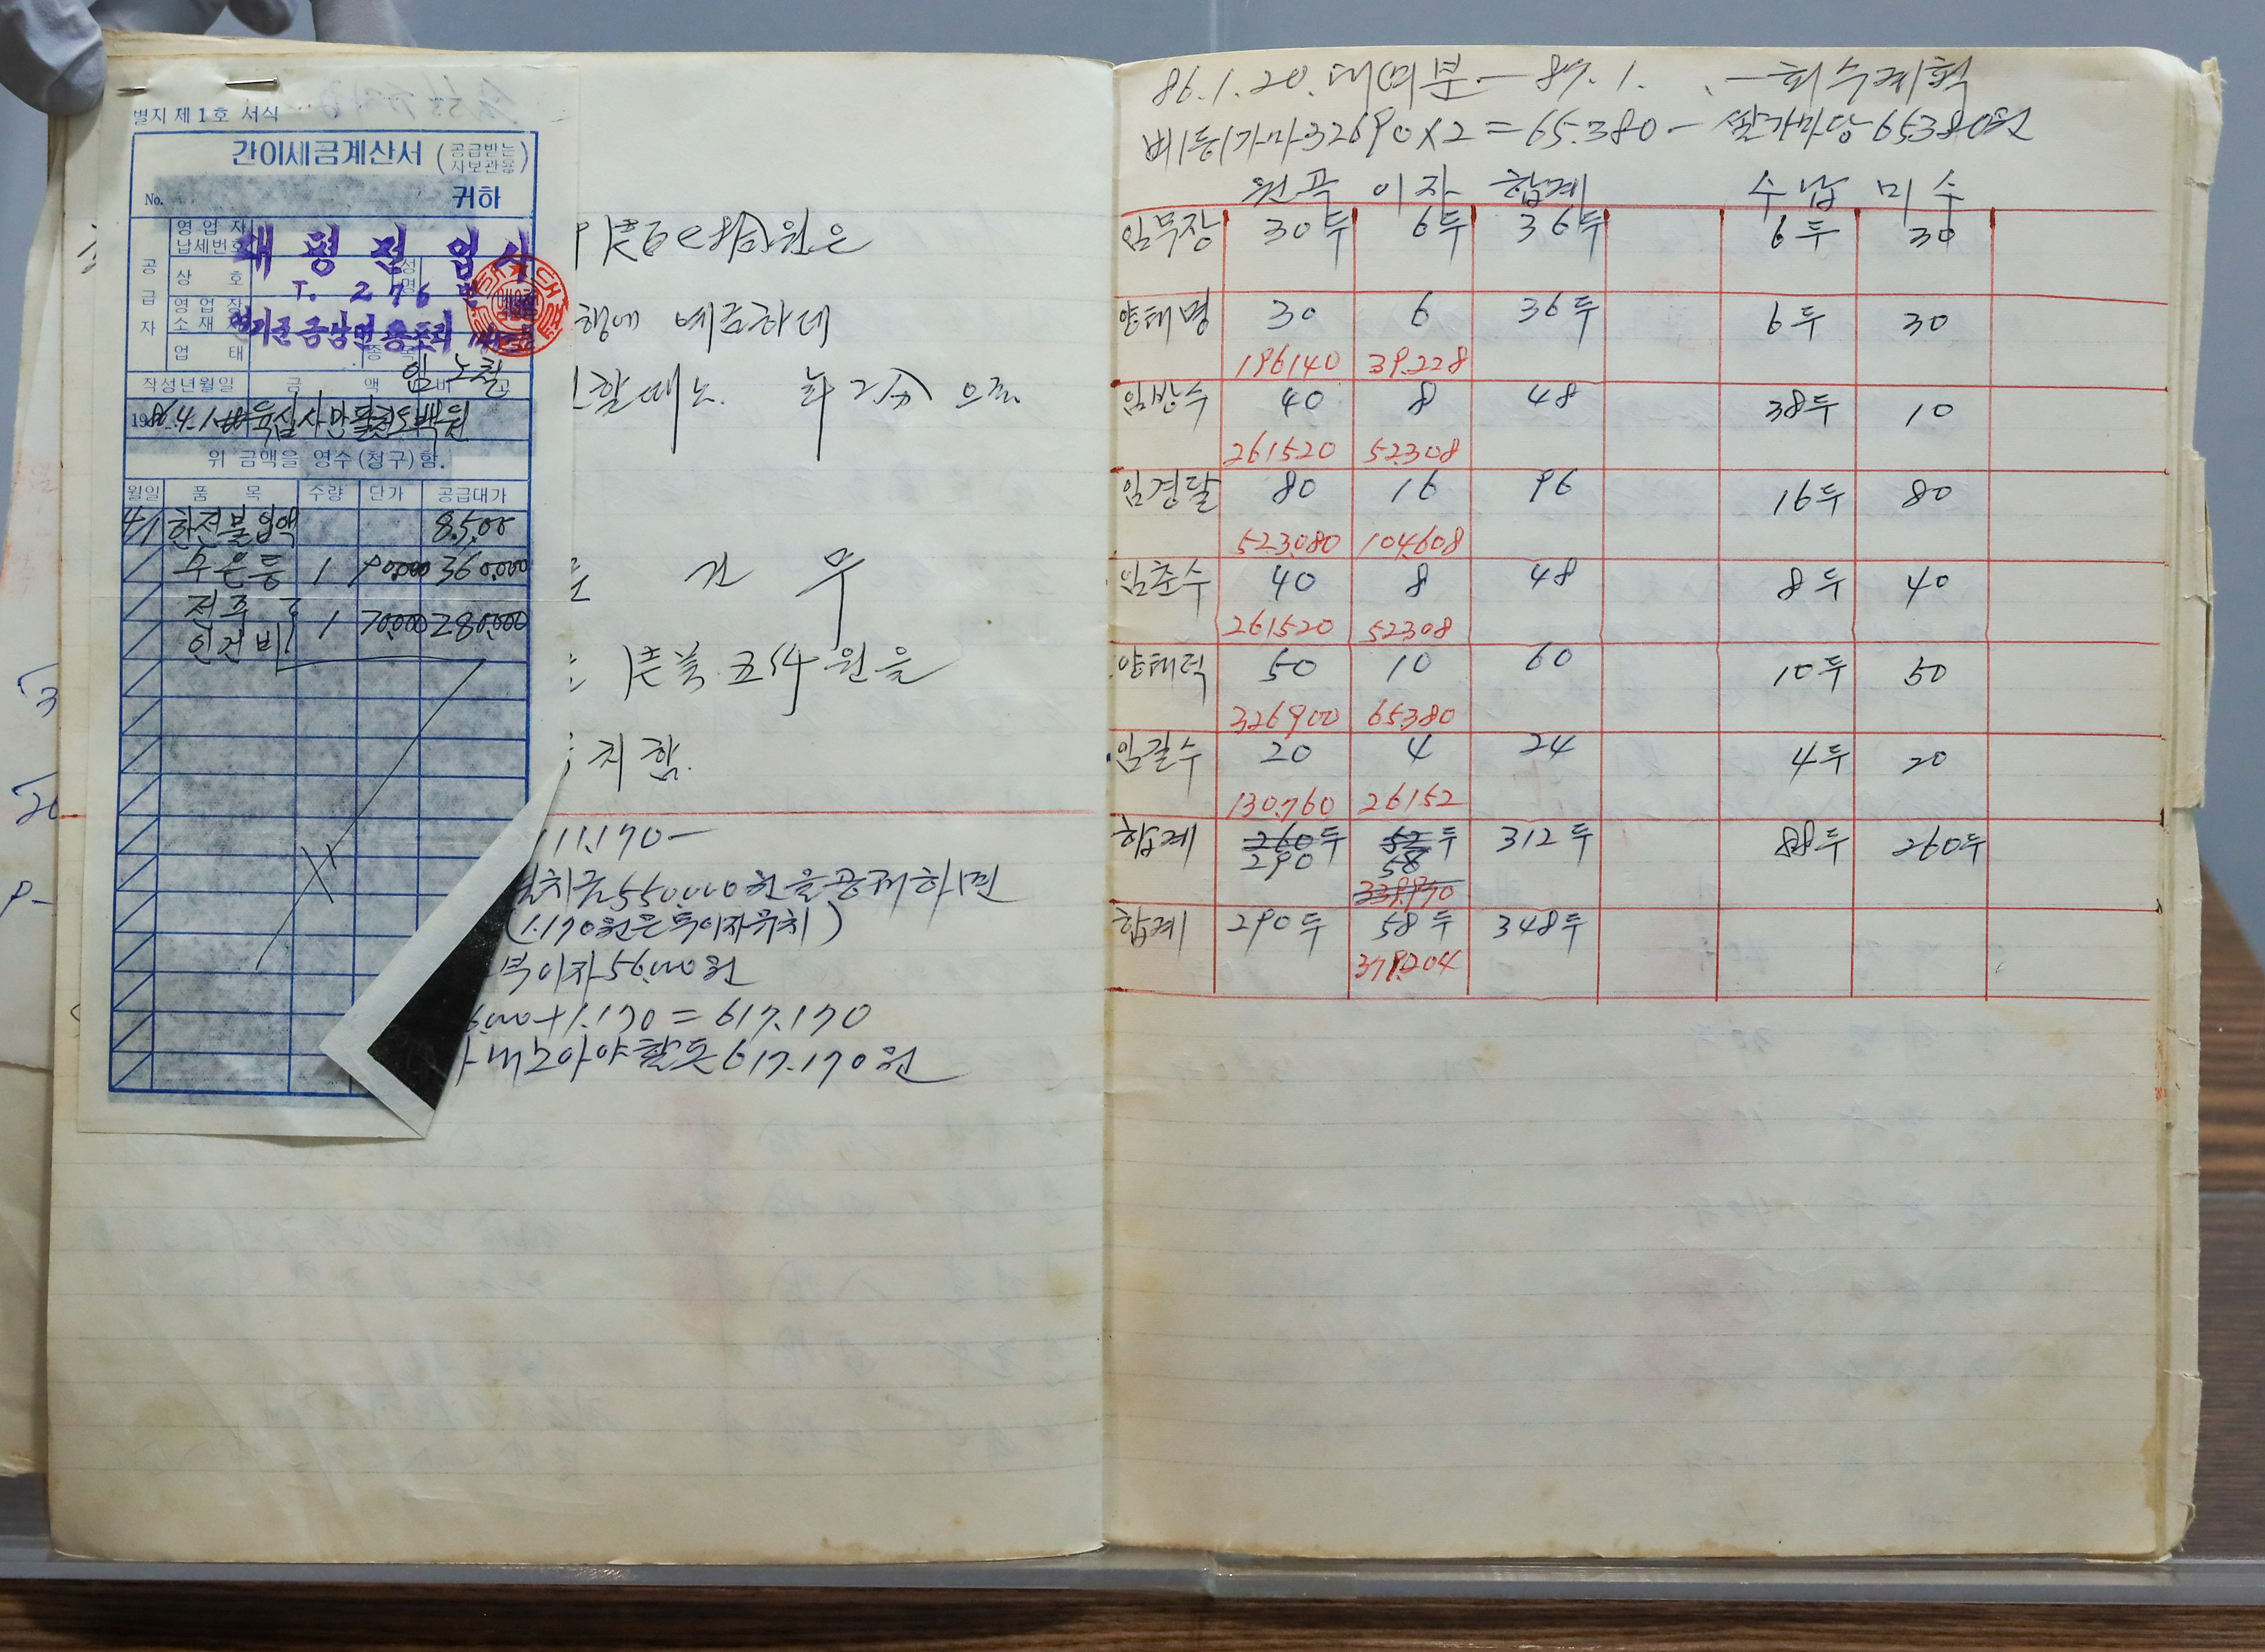 별지 제1호 서식
간이세금계산서 (공급받는 사보관용)
No. 귀하
공급자
영업자 납세번호
대평전업사
상호 성명
T. 276
영업장 소재지
연기군 금남면 용포리
업태 종목
임노철
작성년월일 금액 비고
1986.4.1 육십사만
위 금액을 영수(청구)함.
월일 품목 수량 단가 공급대가
4/1 한전불입액 8,500
수은등 1 90,000 360,000
전주 인건비 1 70,000 280,000
원은
행에 예금하데
할때는 年2分 으로
건 무
원을
치함.
111.170-
치금550,000원을공제하면
(1.170원은특이자유치)
이자56,000원
+1.170=617.170
내노아야할돈617.170원
86.1.20.대여분-87.1. -회수계획
베(동)가마32690X2=65.380-쌀가마당65380원
원곡 이자 합계 수납 미수
임무장 30두 6두 36두 6두 30
양태명 30 6 36두 6두 30
196140 39.228
임방수 40 8 48 38두 10
261520 52308
임경달 80 16 96 16두 80
523080 104608
임춘수 40 8 48 8두 40
261520 52308
양태덕 50 10 60 10두 50
326900 65380
임길수 20 4 24 4두 20
130.760 26152
합계 260두 52두 312두 88두 260두
290 58
339.970
합계 290두 58두 348두
379204